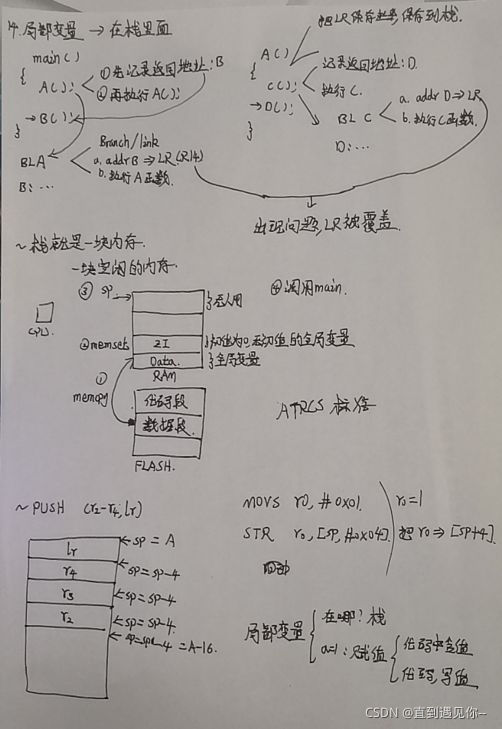 14.局部变量 → 在栈里面
main()
{
A(); ①先记录返回地址:B
②再执行A();
→B();
}
BLA
Branch/link
a. addrB ⇒ LR(R14)
b. 执行A函数.
B: …
把LR保存起来,保存到栈.
A()
{
C(); 记录返回地址:D.
执行C.
→D();
}
BL C
a. addr D ⇒ LR
b. 执行C函数.
D: …
出现问题,LR被覆盖.
~栈就是一块内存.
一块空闲的内存.
③ SP
CPU.
无人用
④调用main.
②memset
ZI
初值为0,无初值的全局变量
Data.
全局变量
RAM
①
memcpy
代码段
数据段
FLASH.
ATPCS 标准
~ PUSH (r2-r4, lr)
lr
r4
r3
r2
SP = A
SP = SP-4
SP = SP-4
SP = SP-4.
= A-16.
MOVS r0, #0x01.
r0=1
STR r0, [SP, #0x04].
把r0 ⇒ [SP+4].
局部变量
在哪? 栈
a=1: 赋值
代码中含值
代码,写值
CSDN @直到遇见你~